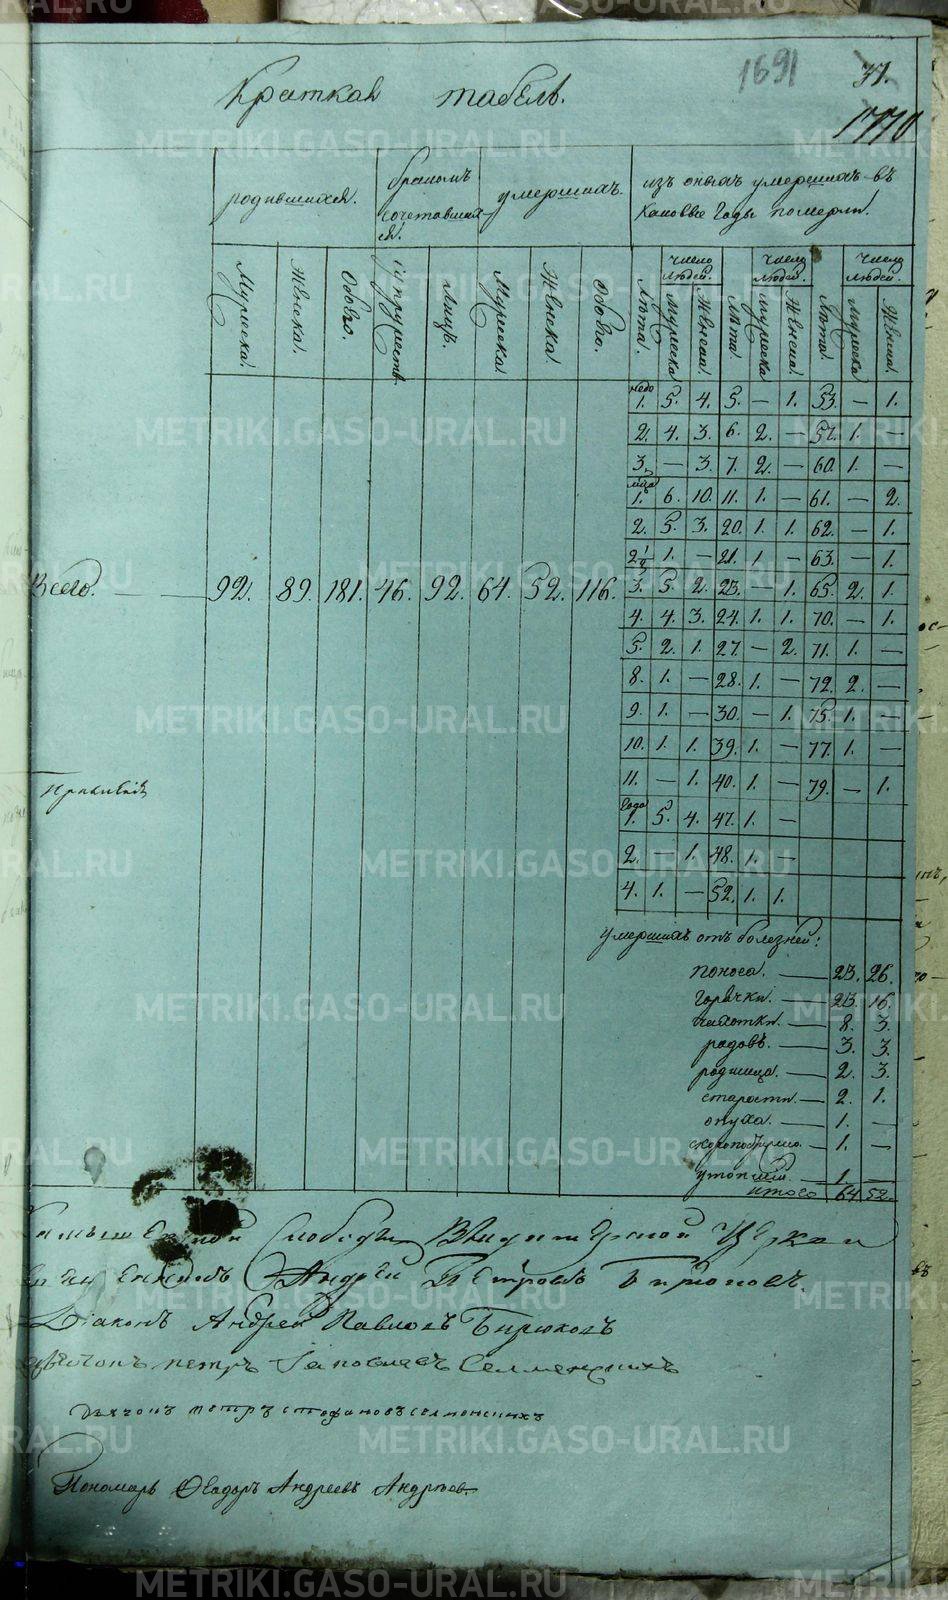 1691 37.
1770
Краткая табель.
родившихся.
бракомъ сочетавших-ся.
умершихъ.
изъ оныхъ умершихъ въ
каковые годы померли.
число людей. число людей. число людей.
Мужеска. Женска. Обоего. супружеств. лицъ. Мужеска. Женска. Обоего. Лѣта. Мужеска. Женска. Лѣта. Мужеска. Женска. Лѣта. Мужеска. Женска.
недо
1. 5. 4. 5. — 1. 53. — 1.
2. 4. 3. 6. 2. — 57. 1. —
3. — 3. 7. 2. — 60. 1. —
мца
1. 6. 10. 11. 1. — 61. — 2.
2. 5. 3. 20. 1. 1. 62. — 1.
2 1/2 1. — 21. 1. — 63. — 1.
Всего. — 92. 89. 181. 46. 92. 64. 52. 116. 3. 5. 2. 23. — 1. 65. 2. 1.
4. 4. 3. 24. 1. 1. 70. — 1.
5. 2. 1. 27. — 2. 71. 1. —
8. 1. — 28. 1. — 72. 2. —
9. 1. — 30. — 1. 75. 1. —
10. 1. 1. 39. 1. — 77. 1. —
11. — 1. 40. 1. — 79. — 1.
года
1. 5. 4. 47. 1. —
2. — 1. 48. 1. —
4. 1. — 52. 1. 1.
умершихъ отъ болезней:
поноса. — 23. 26.
горячки. — 23. 16.
чахотки. — 8. 3.
родовъ. — 3. 3.
родимца. — 2. 3.
старости. — 2. 1.
опуха. — 1. —
скоропостижно. — 1. —
утопшій. — 1. —
итого 64 52.
Слободы Церкви
Андрей Петровъ Бирюковъ.
Діаконъ Андрей Павловъ Бирюковъ
петръ
дьячокъ петръ стефановъ
Пономарь Ѳедоръ Андреевъ Андреев.
METRIKI.GASO-URAL.RU